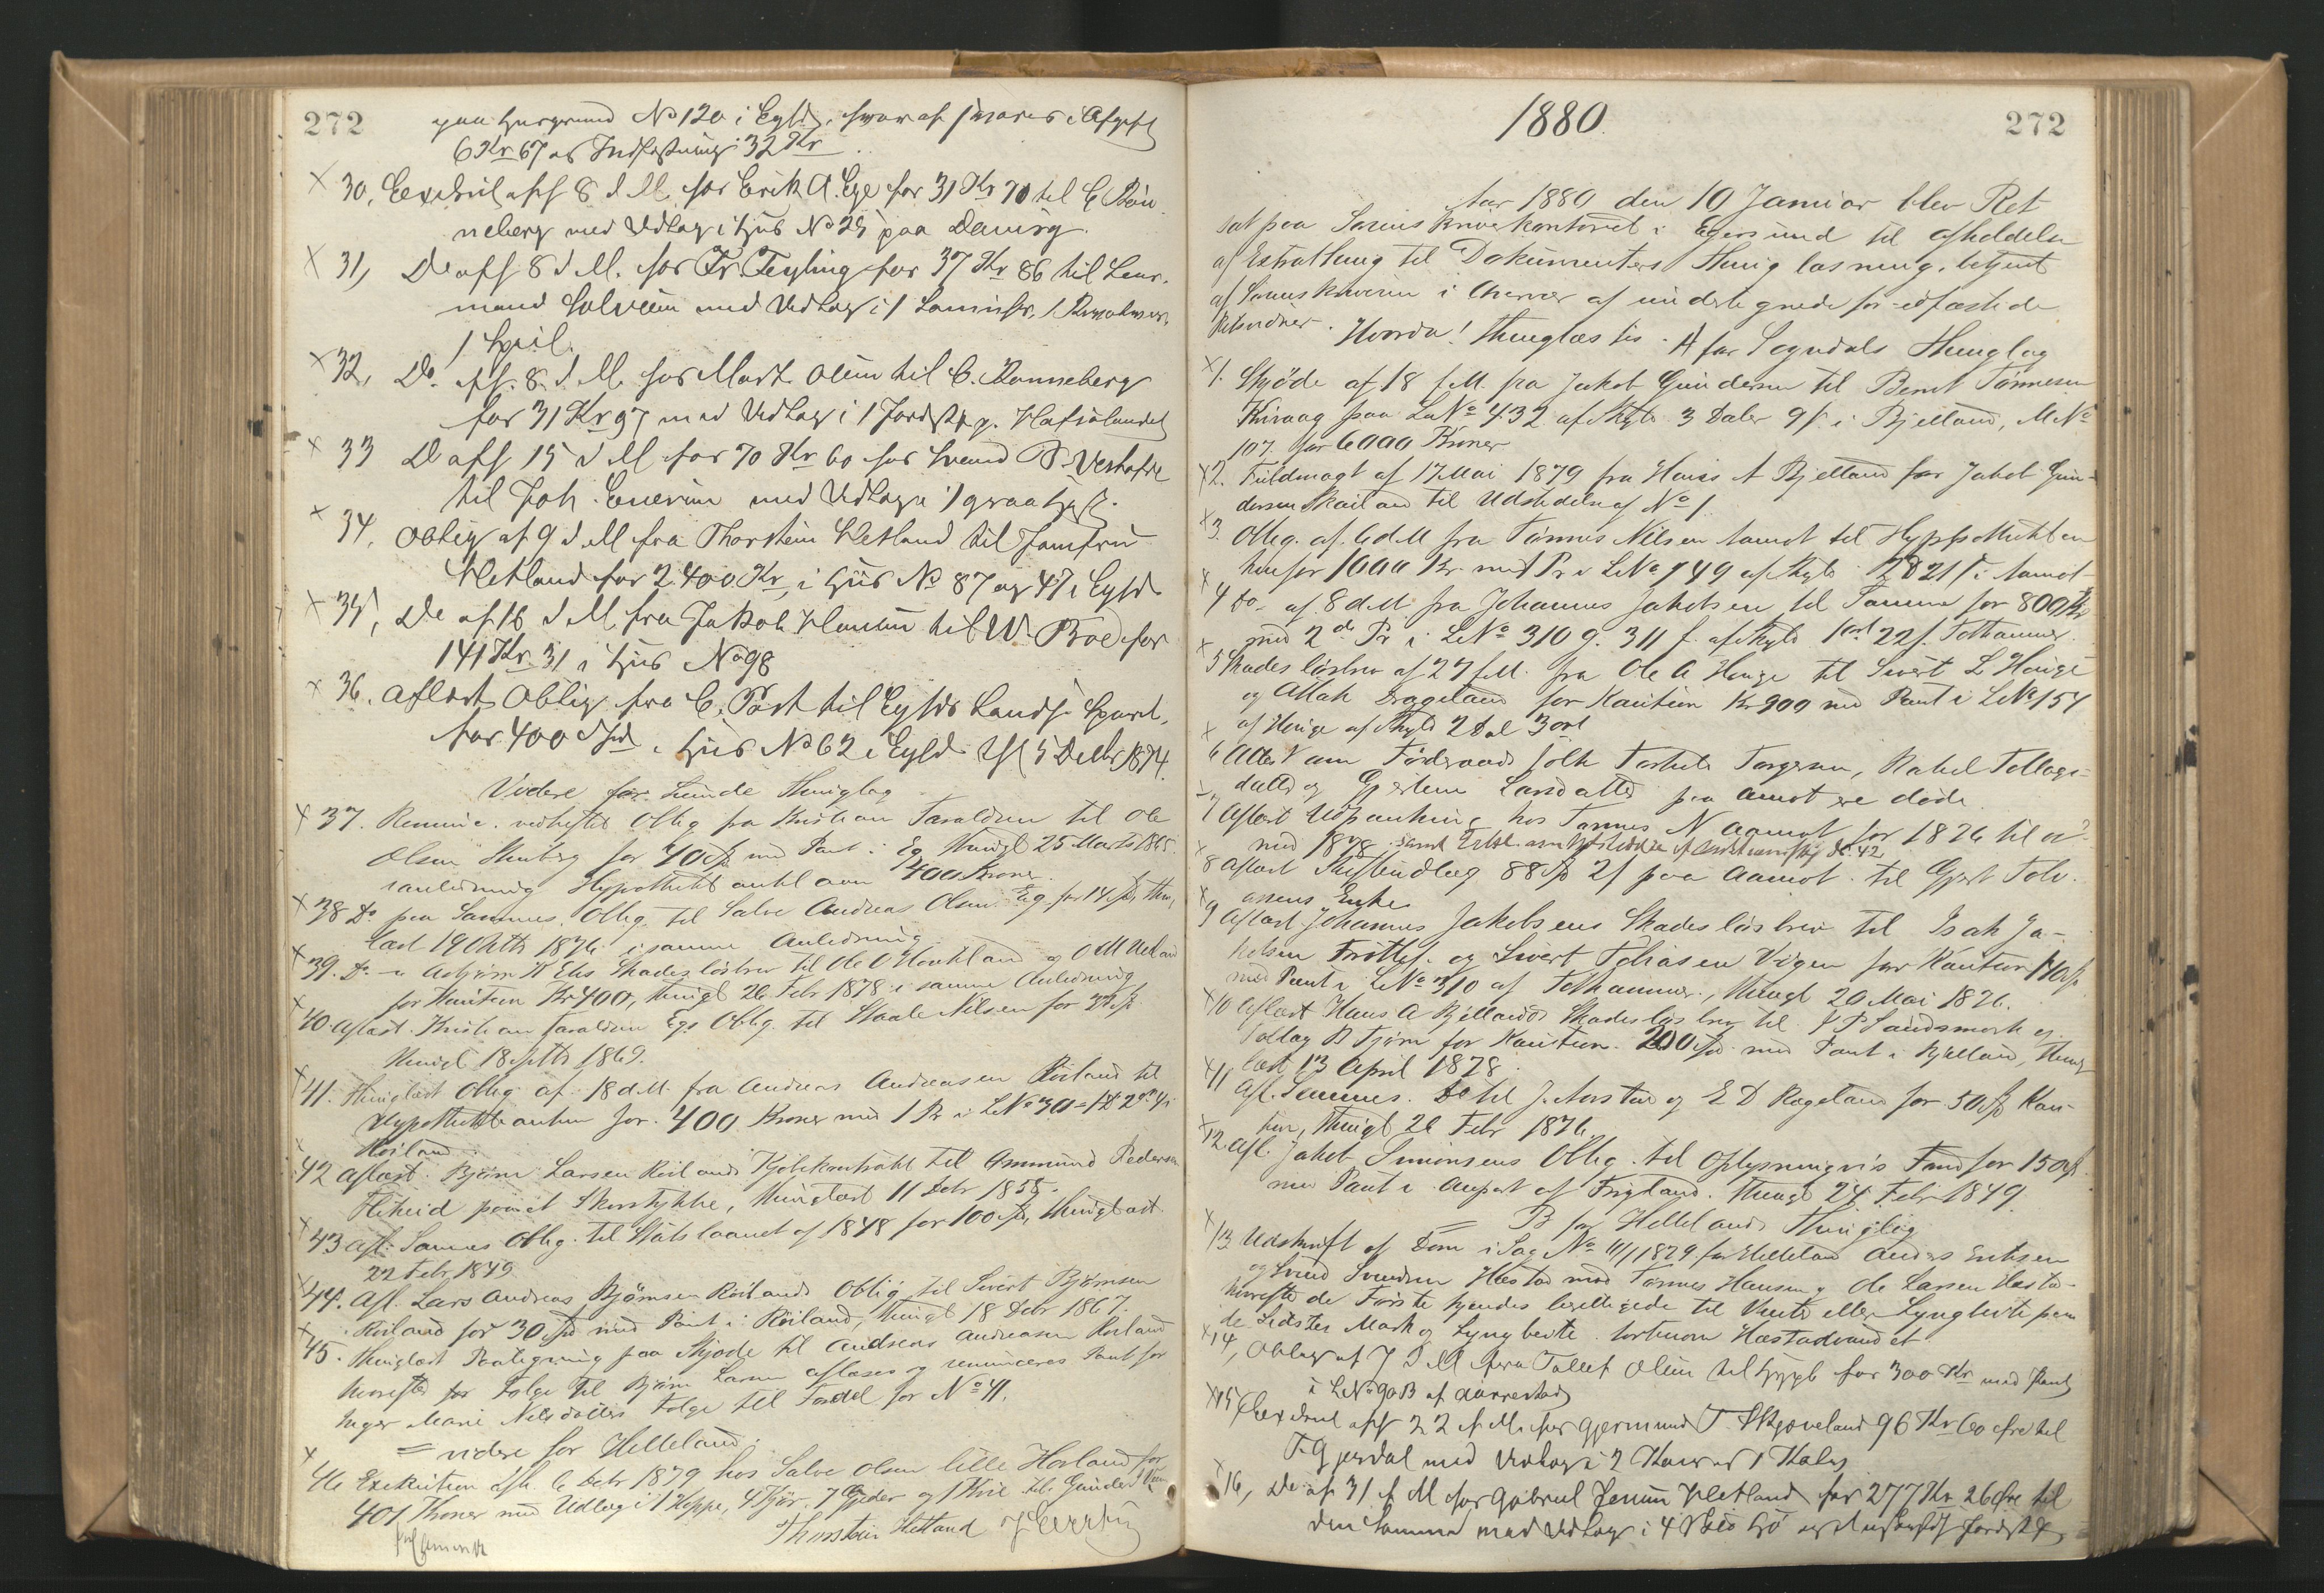 272
paa Husgrund No 120 i Egsd, hvoraf svares i Afgift
6 Kr 67 og Indfæstning 32 Kr
30, Execut. afh 8 d M. hos Erik A. Ege for 31 Kr 70 til C. Rön-
neberg med Udlæg i Huus No 25 paa
31, Do afh 8 d M. hos Fr Feyling for 37 Kr 86 til Lens-
mand med Udlæg i 1
1 Speil.
32, Do. afh. 8. d M. hos Mart. Olsen til C. Rönneberg
for 31 Kr 97 med Udlæg i 1 Jordst. p. Hafsölandet
33 Do afh 15 d M for 70 Kr 60 hos Svend
til Joh. med Udlæg i 1 graa Hest.
34, Oblig af 9 d M fra Thorstein Hetland til Jomfru
Hetland for 2400 Kr, i Huus No 87 og 47 i Egsd
35, Do af 16 d M fra Jakob Hansen til W. Boe for
141 Kr. 31 i Huus No 98
36. Aflæst Oblig fra C. Post til Egsds Lands. Spareb.
for 400 Spd i Huus No 62 i Egsd. 5 Decbr 1874.
Videre for Lunde Thinglag
37. vedheftet Oblig fra Kristian Taraldsen til Ole
Olsen for 70 Spd med Pant i Eg Thingl 25 Marts 1865
i anledning Hypothekbankl aan 400 Kroner.
38 Do paa Sammes Oblig til Salve Andreas Olsen Eg for 14 Spd, Thin-
læst 19 1876 i samme Anledning
39. Do - Asbjörn K Eks Skadeslösbrev til Ole O Haukland og O M
for Kaution Kr 400, thingl 26 Febr 1878 i samme Anledning
40. Aflæst. Kristian Taraldsen Egs Oblig. til Staale Nilsen for Spd
thingl 18 Septbr 1869.
41. Thinglæst Oblig af 18 d.M. fra Andreas Andreasen Röiland til
Hypothekbanken for 400 Kroner med 1 Pr i L No 30 =
Röiland.
42 Aflæst. Björn Larsen Röilands Kjöbekontrakt til Ommund Pedersen
paa et Skovstykke, thinglæst 11 Debr 1855.
43 Afl. Sammes Oblig. til Statslaanet af 1848 for 100 Spd, thinglæst
22 Febr 1849
44. Afl. Lars Andreas Björnsen Röilands Oblig til Sivert Björnsen
Röiland for 30 Spd med Pant i Röiland, thingl 18 Debr 1867.
45. Thinglæst Paategning paa Skjöde til Andreas Andreasen Röiland
hvorefter for Følge til Björn Larsen aflæses og renunceres Pant for
Inger Marie Nilsdatters Følge til Fordel for No 41.
= videre for Helleland.
46 Exekution afh. 6 Debr 1879 hos Salve Olsen lille Hovland for
401 Kroner med Udlæg i 1 Hoppe, 4 Kjör, 7 Gjeder og 1 Kvie til Gunder
Thorstein Hetland
1880.
272
Aar 1880 den 10 Januar blev Ret
sat paa Sorenskriverkontoret i Egersund til Afholdelse
af Extrathing til Dokumenters Thinglæsning, betjent
af Sorenskriveren i Overvær af undertegnede for-edfæstede
Retsvidner. Hvorda! thinglæstes. A for Sogndals Thinglag
1. Skjöde af 18 f.M. fra Jakob Gundersen til Bernt Tönnesen
Kiraag paa L No 432 af Skyld 3 Daler 9 s i Bjelland, M No
107 for 6000 Kroner
2. Fuldmagt af 17 Mai 1879 fra Hans A Bjelland for Jakob Gun-
dersen Skailand til Udstedelse af No 1
3. Oblig. af 6 d M fra Tönnes Nilsen Aamot til Hyppothekban-
ken for 1000 Kr. med Pr i L No 149 af Skyld 2 D 21 s i Aamot
4 Do. af 8 d M fra Johannes Jakobsen til Samme for 800 Kr
med 2den Pr i L No 310 g. 311 f. af Skyld 1 ort 22 s. Tothammer.
5 Skadeslösbrev af 27 f.M. fra Ole A Hauge til Sivert L Hauge
og Atlak Drageland for Kaution Kr 900 med Pant i L No 154
af Hauge af Skyld 2 Dal 3 ort
6 Attest om Föderaadsfolk Torkild Torgersen, Rakel Tollags-
datter og Gjertine Larsdatter paa Aamot ere döde.
7 Aflæst Udpantning hos Tönnes N Aamot for 1876 til
med 1878
8 Aflæst Skifteudlæg 88 Spd 2 s paa Aamot til Gjert Tolv.
assens Enke
9 Aflæst Johannes Jakobsens Skadeslösbrev til Isak Ja-
kobsen Fröitlef. og Sivert Tobiasen Vögen for Kaution 140 Spd
med Pant i L No 310 af Tothammer, thingl 20 Mai 1876.
10 Aflæst Hans A Bjellands Skadeslösbrev til J P Sandsmark og
Tollag B Tjörn for Kaution 200 Spd med Pant i Bjelland, thing
læst 13 April 1878.
11 Afl. Sammes. Do til J. Aarstad og E D Rageland for 50 Spd Kau-
tion, thingl 26 Febr 1876
12. Afl. Jakob Simonsens Oblig. til Oplysningsvs Fond for 150 Spd
med Pant i Anpart af Frigstad. Thingl 24 Febr 1849.
= B for Hellelands Thinglag
13 Udskrift af Dom i Sag No 111/1879 for Helleland Anders Eriksen
og Svend Svendsen Hæstad mod Tönnes Hansen og Ole Larsen Hæstad
hvorefter de Förste kjendes berettigede til Vinter eller Lyngbeite paa
de Sidstes Mark og Lyngbeite bortenom Hæstadvandet
14, Oblig af 7 d M fra Tollef Olsen til Hypb for 300 Kr med Pant
i L No 90B af Aarrestad
15, Execut afh 22 f. M. hos Gjermund T. Skjæveland 96 Kr 60 öre til
T. Gjerdal med Udlæg i 2 Kour og 1 Kalv
16, Do af 31 f M hos Gabriel Jensen Hetland for 277 Kr 26 Öre til
den Samme med Udlæg i 4